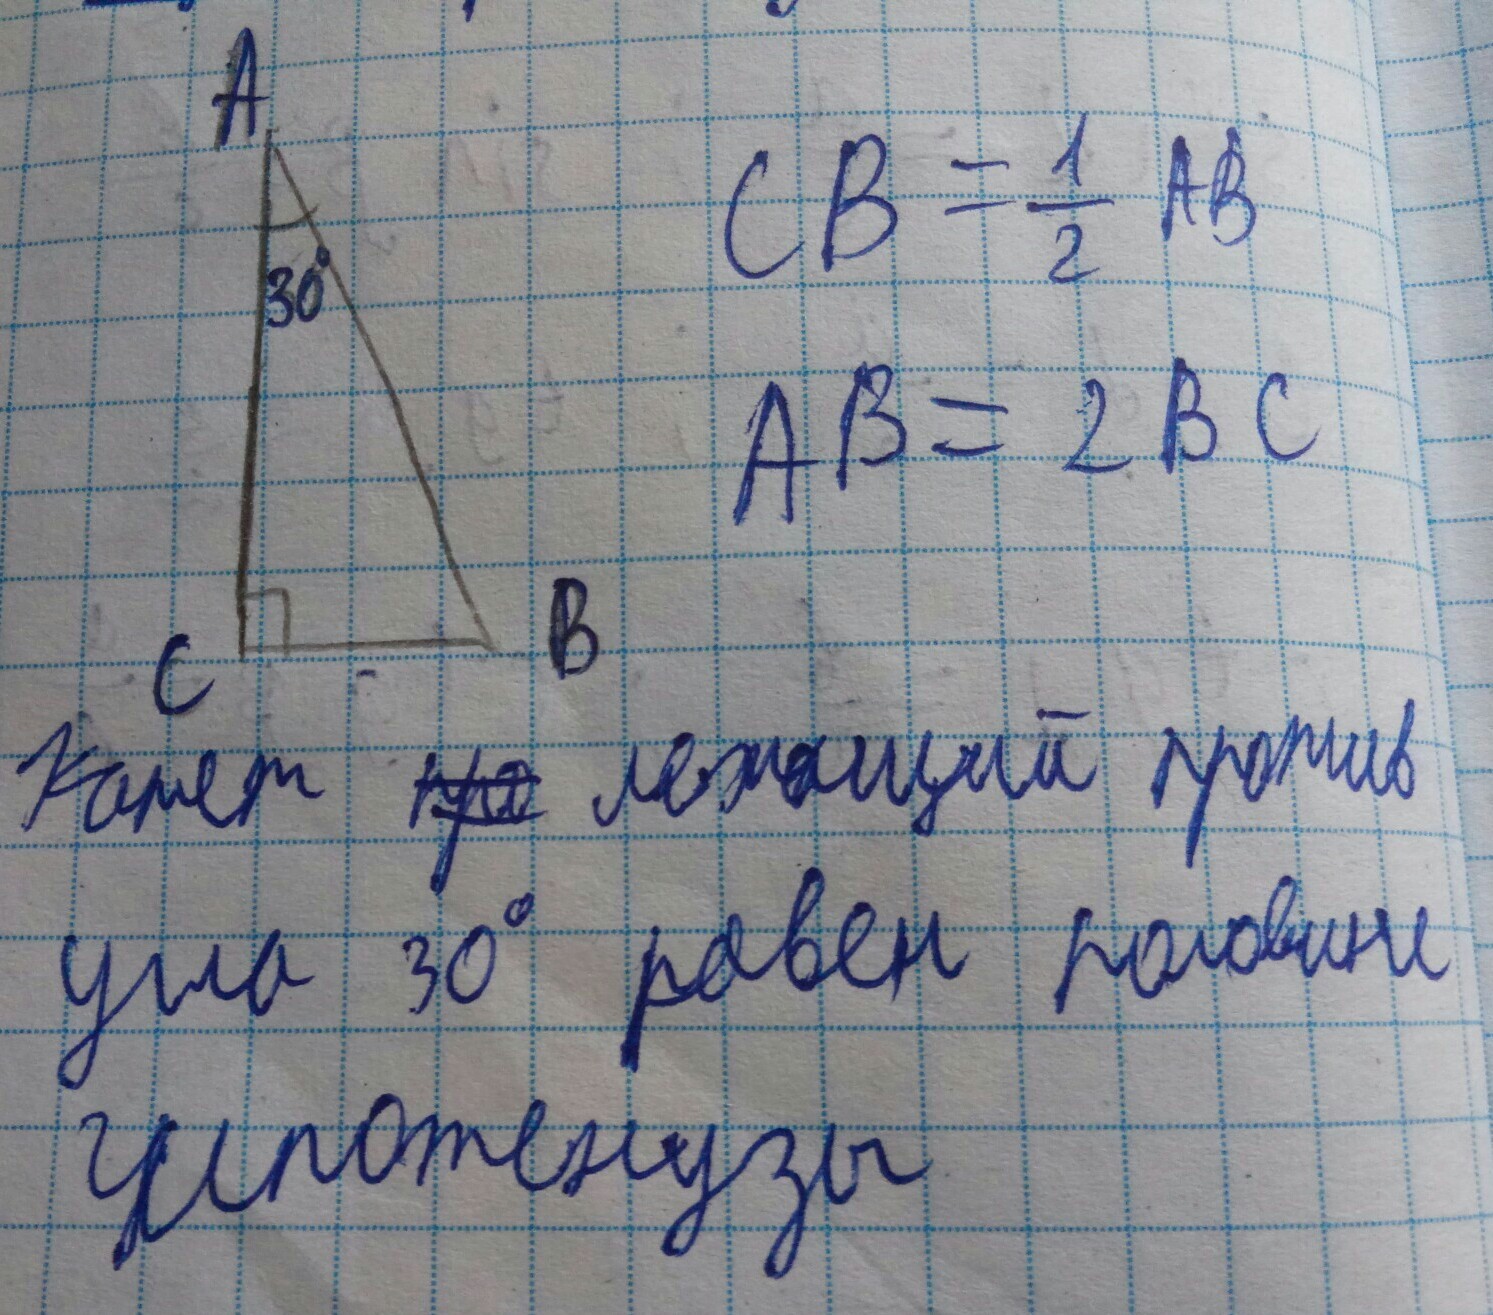 A
30°
C
B
CB = 1/2 AB
AB = 2BC
Катет лежащий против
угла 30° равен половине
гипотенузы